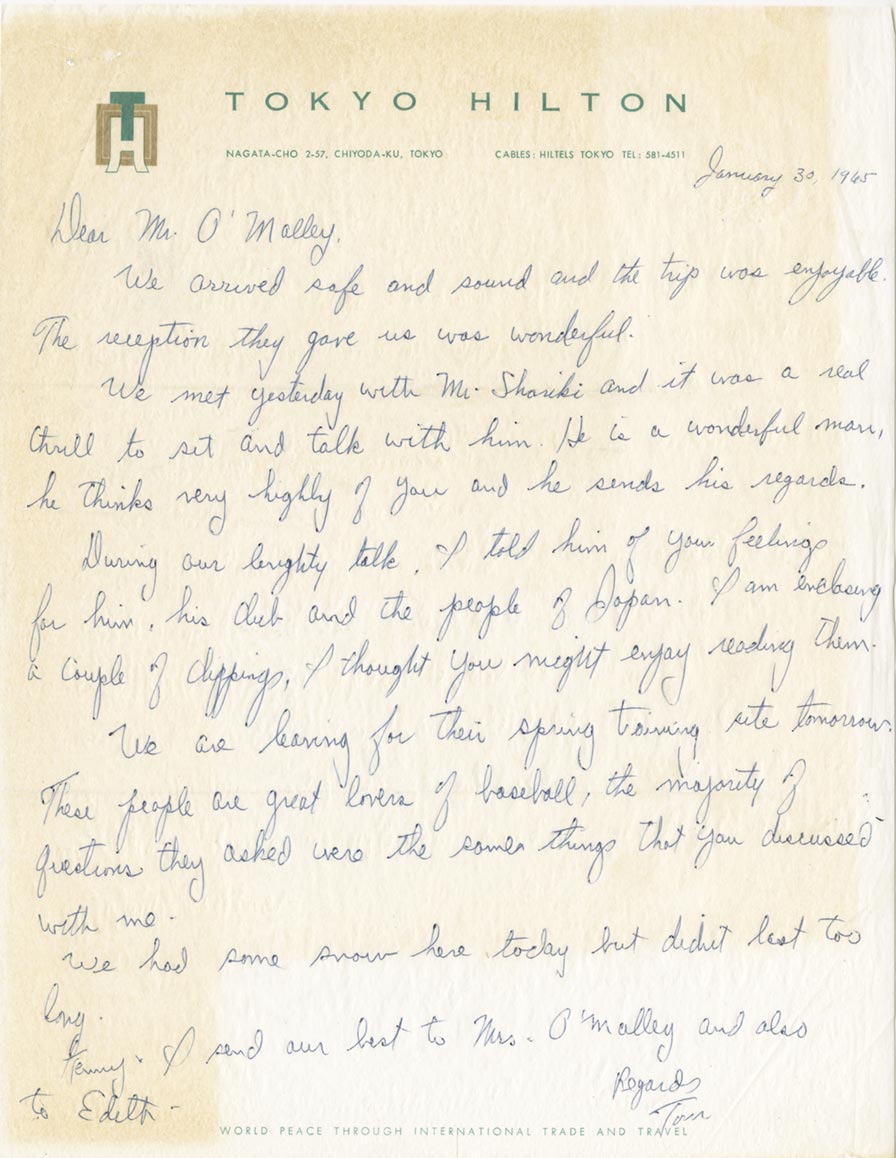 TH
TOKYO HILTON
NAGATA-CHO 2-57, CHIYODA-KU, TOKYO CABLES: HILTELS TOKYO TEL: 581-4511
January 30, 1965
Dear Mr. O'Malley,
We arrived safe and sound and the trip was enjoyable.
The reception they gave us was wonderful.
We met yesterday with Mr. Shoriki and it was a real
thrill to sit and talk with him. He is a wonderful man,
he thinks very highly of you and he sends his regards.
During our lenghty talk, I told him of your feelings
for him, his club and the people of Japan. I am enclosing
a couple of clippings, I thought you might enjoy reading them.
We are leaving for their spring training site tomorrow.
These people are great lovers of baseball, the majority of
questions they asked were the same things that you discussed
with me.
We had some snow here today but didn't last too
long.
Kenny & I send our best to Mrs. O'Malley and also
to Edith.
Regards
Tom
WORLD PEACE THROUGH INTERNATIONAL TRADE AND TRAVEL